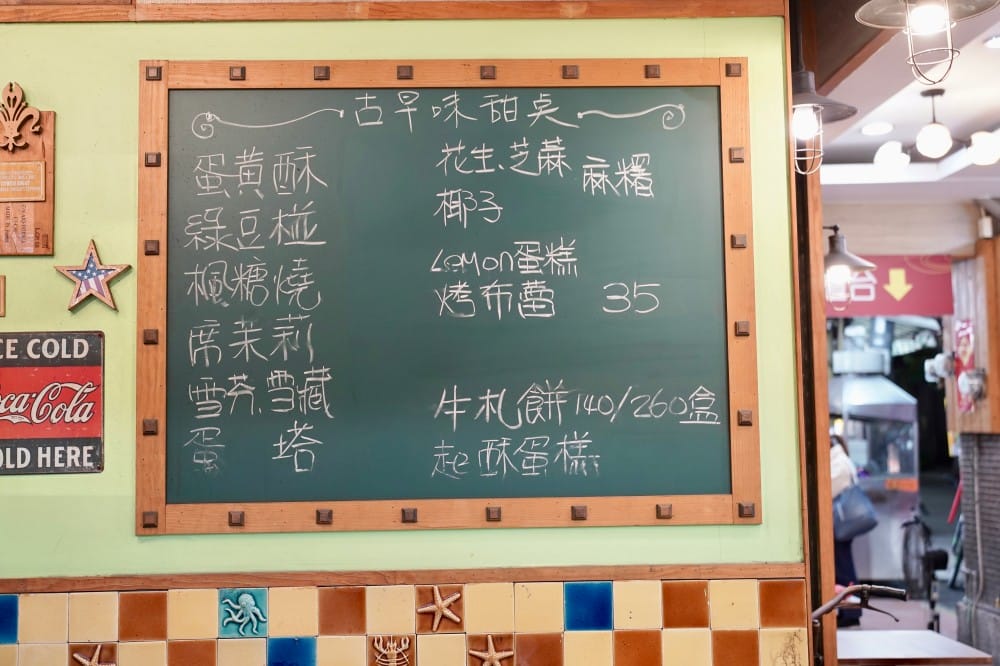 古早味甜桌
蛋黃酥
綠豆椪
楓糖燒
席茉莉
雪芬、雪藏
蛋塔
花生、芝麻 麻糬
椰子
Lemon蛋糕
烤布蕾 35
牛札餅140/260盒
起酥蛋糕
CE COLD
Coca-Cola
OLD HERE
台